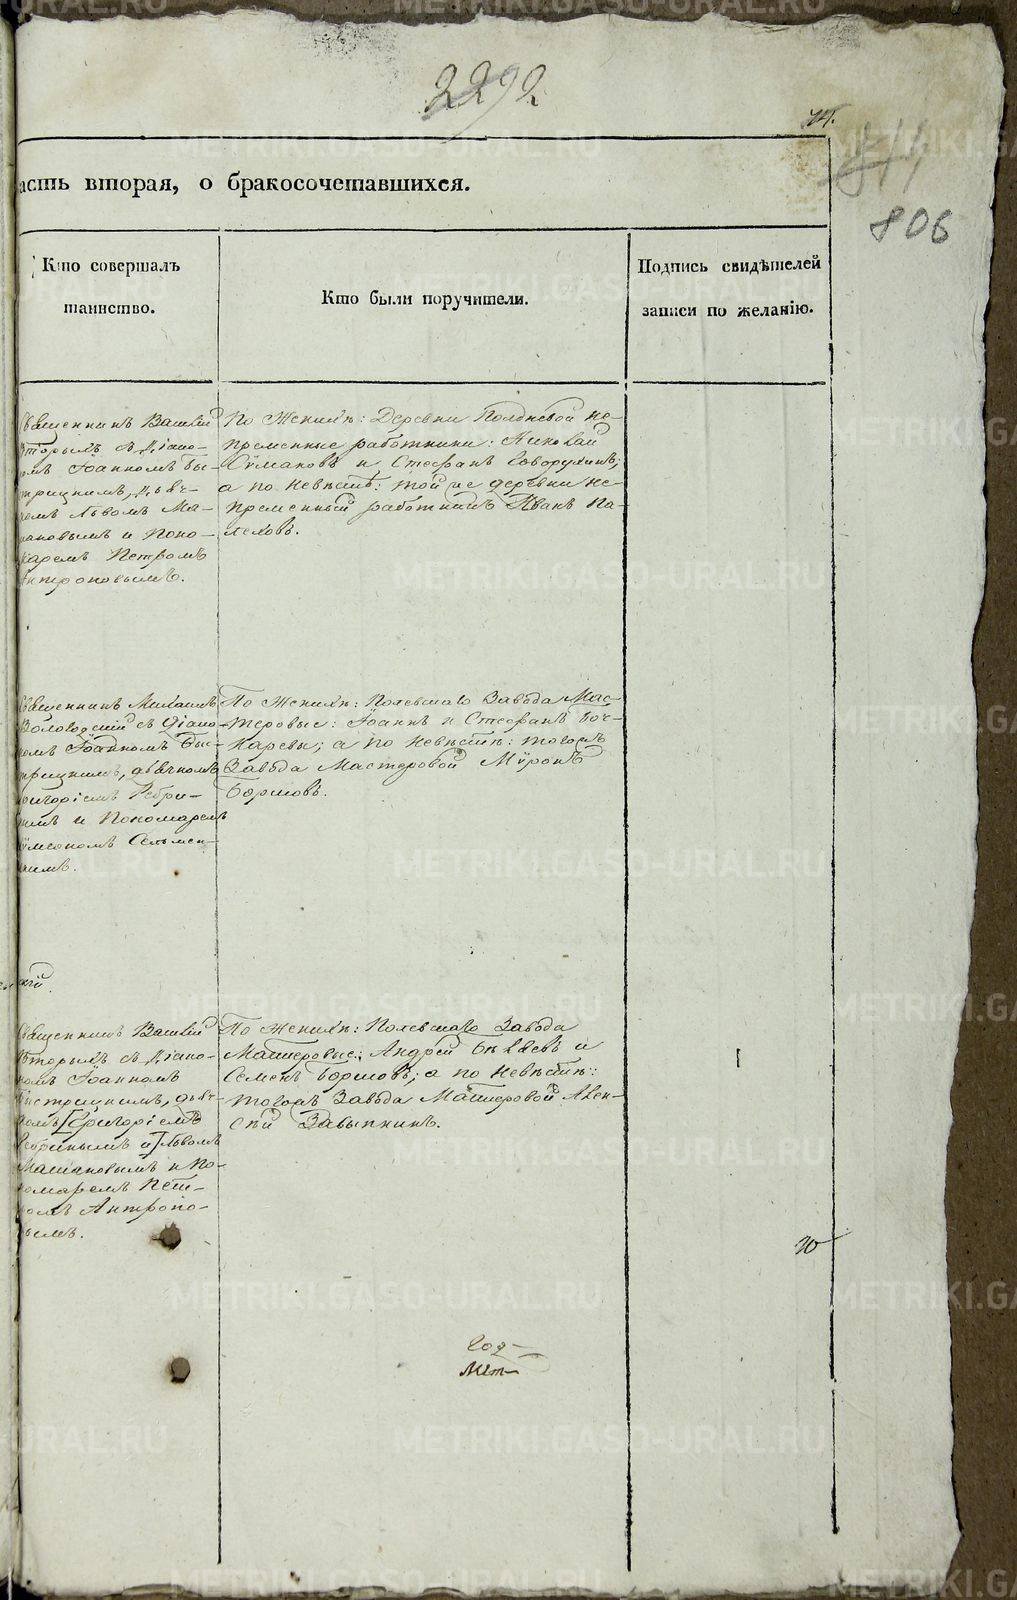 2292
асть вторая, о бракосочетавшихся.
806
Кто совершалъ
таинство.
Кто были поручители.
Подпись свидѣтелей
записи по желанію.
Священникъ Василій
Вторыхъ съ Діако-
омъ Іоанномъ Бы-
трицкимъ, дьяч-
комъ Львомъ Ма-
ановымъ и Поно-
аремъ Петромъ
Антроповымъ.
По Женихѣ: Деревни Полдневой не-
пременные работники: Николай
и Стефанъ Говорухинъ;
а по невѣстѣ: той же деревни не-
пременный работникъ Иванъ Па-
леховъ.
Священникъ Михаилъ
Вологодскій съ Діако-
номъ Іоанномъ Быс-
трицкимъ, дьячкомъ
ригоріемъ Ребри-
нымъ и Пономаремъ
Сельмен-
нимъ.
По Женихѣ: Полевскаго Завода Мас-
теровые: Іоаннъ и Стефанъ Боч-
каревы; а по невѣстѣ: тогожъ
Завода Мастеровой Мѵронъ
Боршовъ.
кій
Священникъ Василій
Вторыхъ съ Діако-
номъ Іоанномъ
Быстрицкимъ, дьяч-
комъ [Григоріемъ
Ребринымъ и] Львомъ
Машановымъ и По-
номаремъ Пет-
ромъ Антропо-
вымъ.
По Женихѣ: Полевскаго Завода
Мастеровые: Андрей Бѣляевъ и
Семенъ Боршовъ; а по невѣстѣ:
тогожъ Завода Мастеровой Алек-
сѣй
METRIKI.GASO-URAL.RU